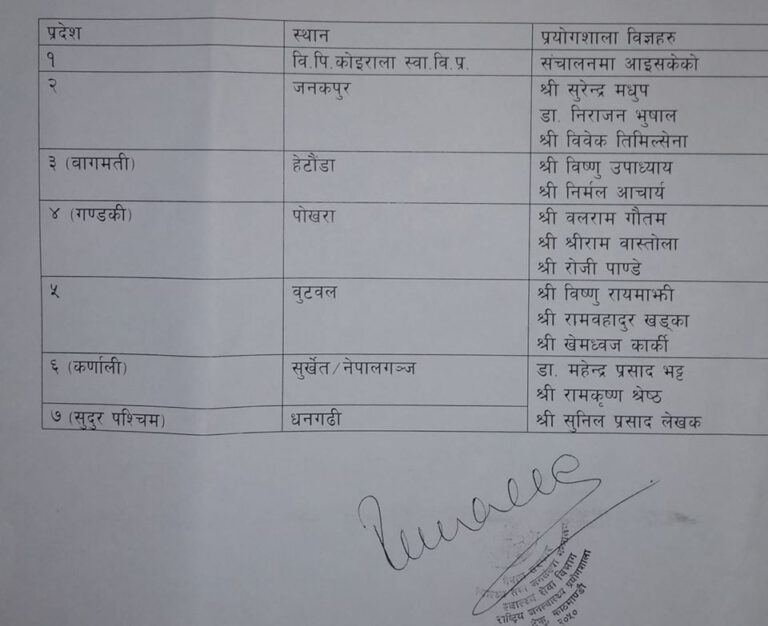 प्रदेश स्थान प्रयोगशाला विज्ञहरु
१ वि.पि.कोइराला स्वा.वि.प्र. संचालनमा आइसकेको
२ जनकपुर श्री सुरेन्द्र मधुप
डा. निराजन भुषाल
श्री विवेक तिमिल्सेना
३ (वागमती) हेटौडा श्री विष्णु उपाध्याय
श्री निर्मल आचार्य
४ (गण्डकी) पोखरा श्री वलराम गौतम
श्री श्रीराम वास्तोला
श्री रोजी पाण्डे
५ वुटवल श्री विष्णु रायमाझी
श्री रामवहादुर खड्का
श्री खेमध्वज कार्की
६ (कर्णाली) सुर्खेत/नेपालगञ्ज डा. महेन्द्र प्रसाद भट्ट
श्री रामकृष्ण श्रेष्ठ
७ (सुदुर पश्चिम) धनगढी श्री सुनिल प्रसाद लेखक
स्वास्थ्य सेवा विभाग
राष्ट्रिय जनस्वास्थ्य प्रयोगशाला
काठमाण्डौ
२०५०